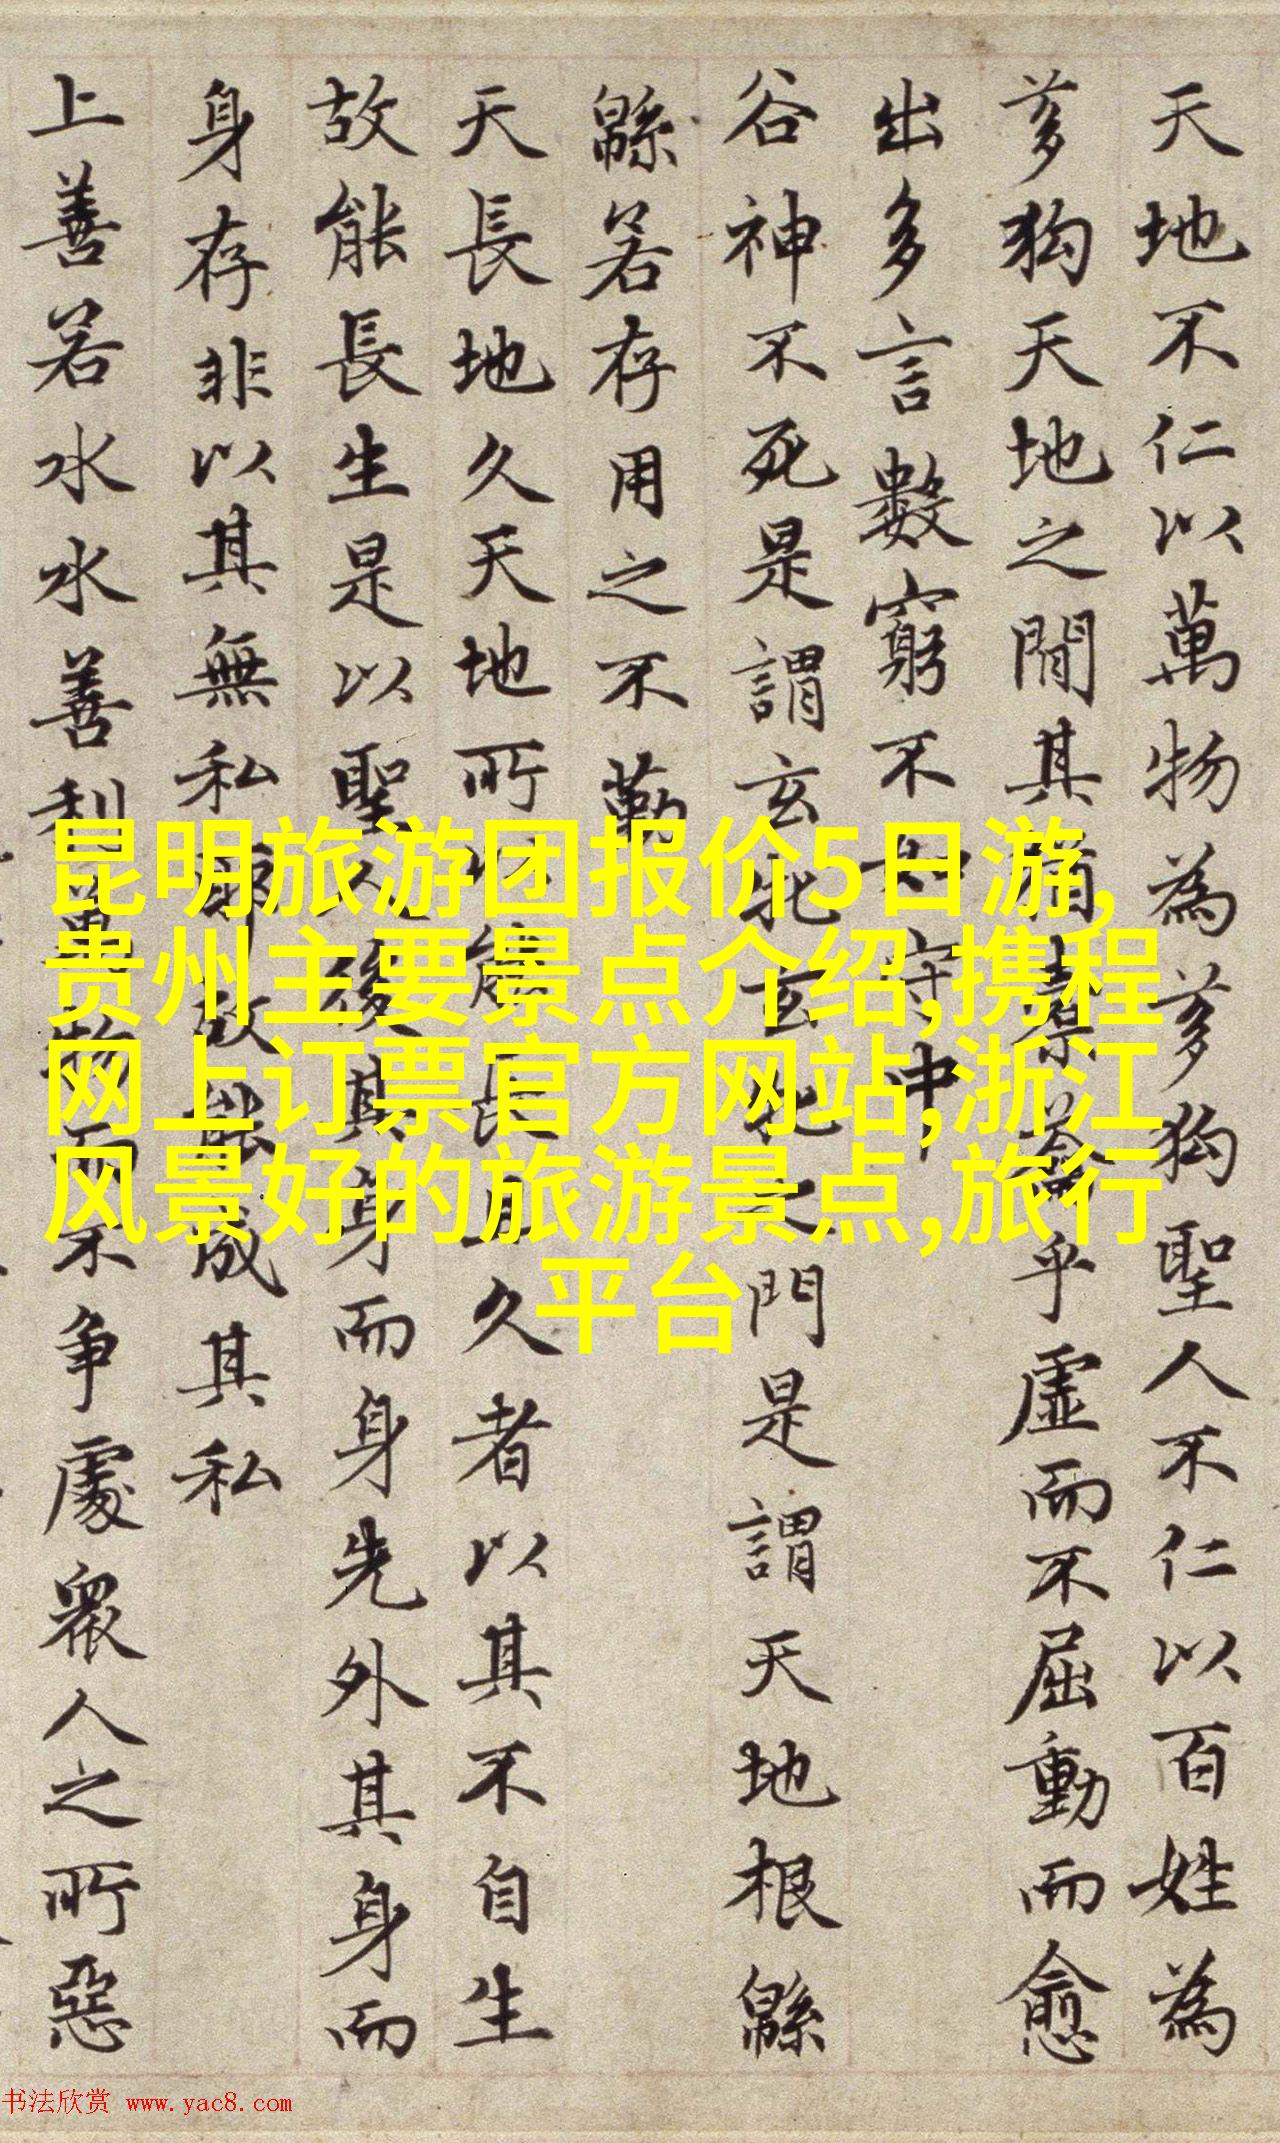 天地不仁以萬物為芻狗聖人不仁以百姓為
芻狗天地之間其猶橐籥乎虛而不屈動而愈
出多言數窮不如守中
谷神不死是謂玄牝玄牝之門是謂天地根緜
緜若存用之不勤
天長地久天地所以能長且久者以其不自生
故能長生是以聖人後其身而身先外其身而
身存非以其無私耶故能成其私
上善若水水善利萬物而不争處衆人之所惡
昆明旅游团报价5日游,
贵州主要景点介绍,携程
网上订票官方网站,浙江
风景好的旅游景点,旅行
平台
书法欣赏 www.yac8.com